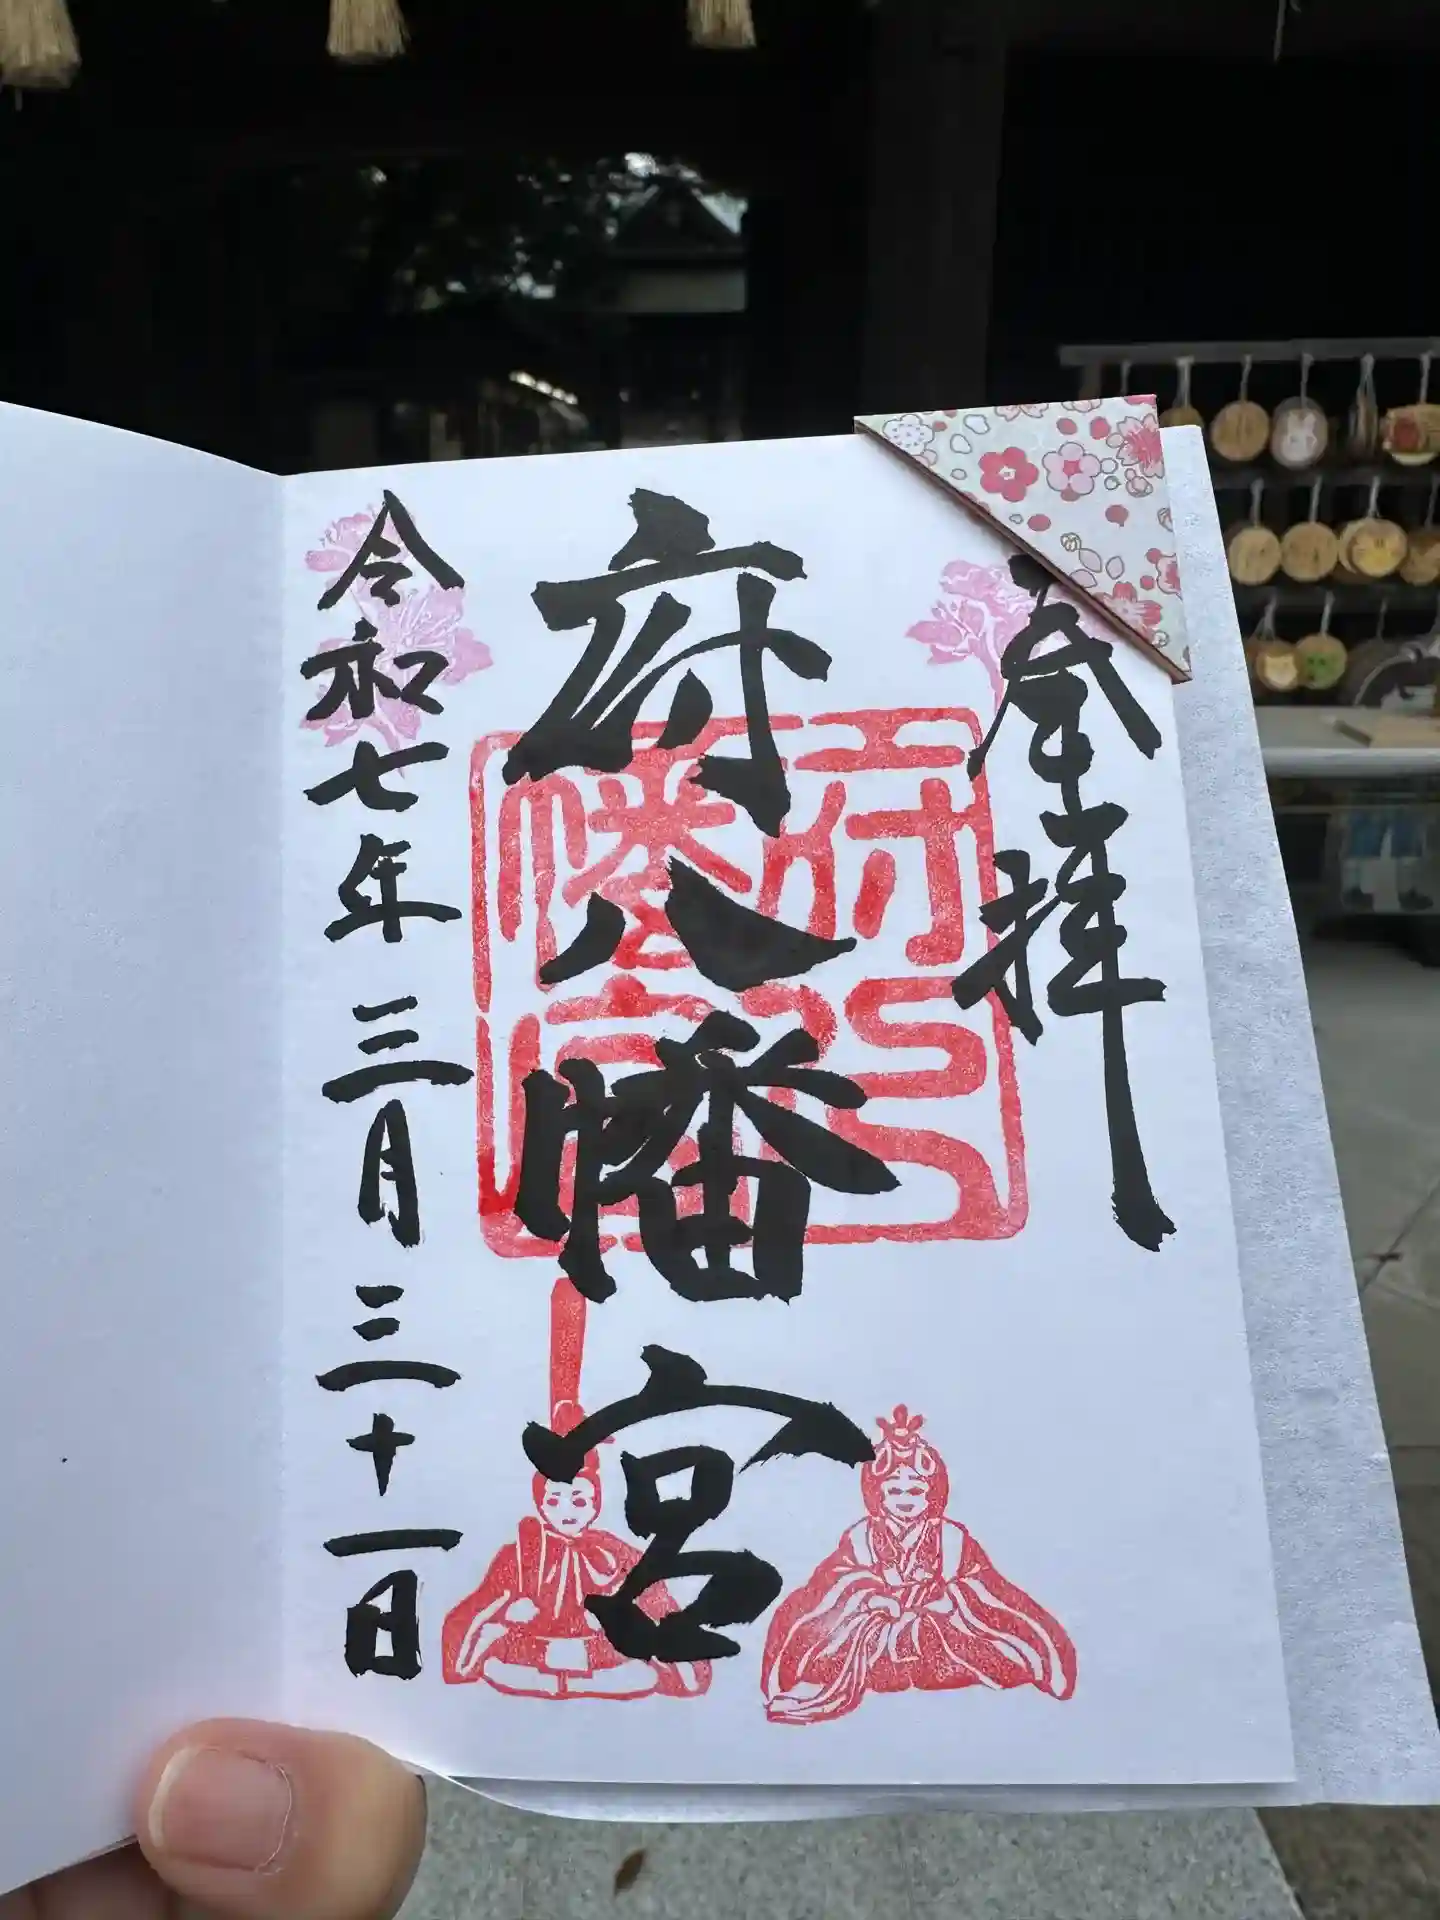 奉拝
府八幡宮
府八幡宮
令和七年三月三十一日